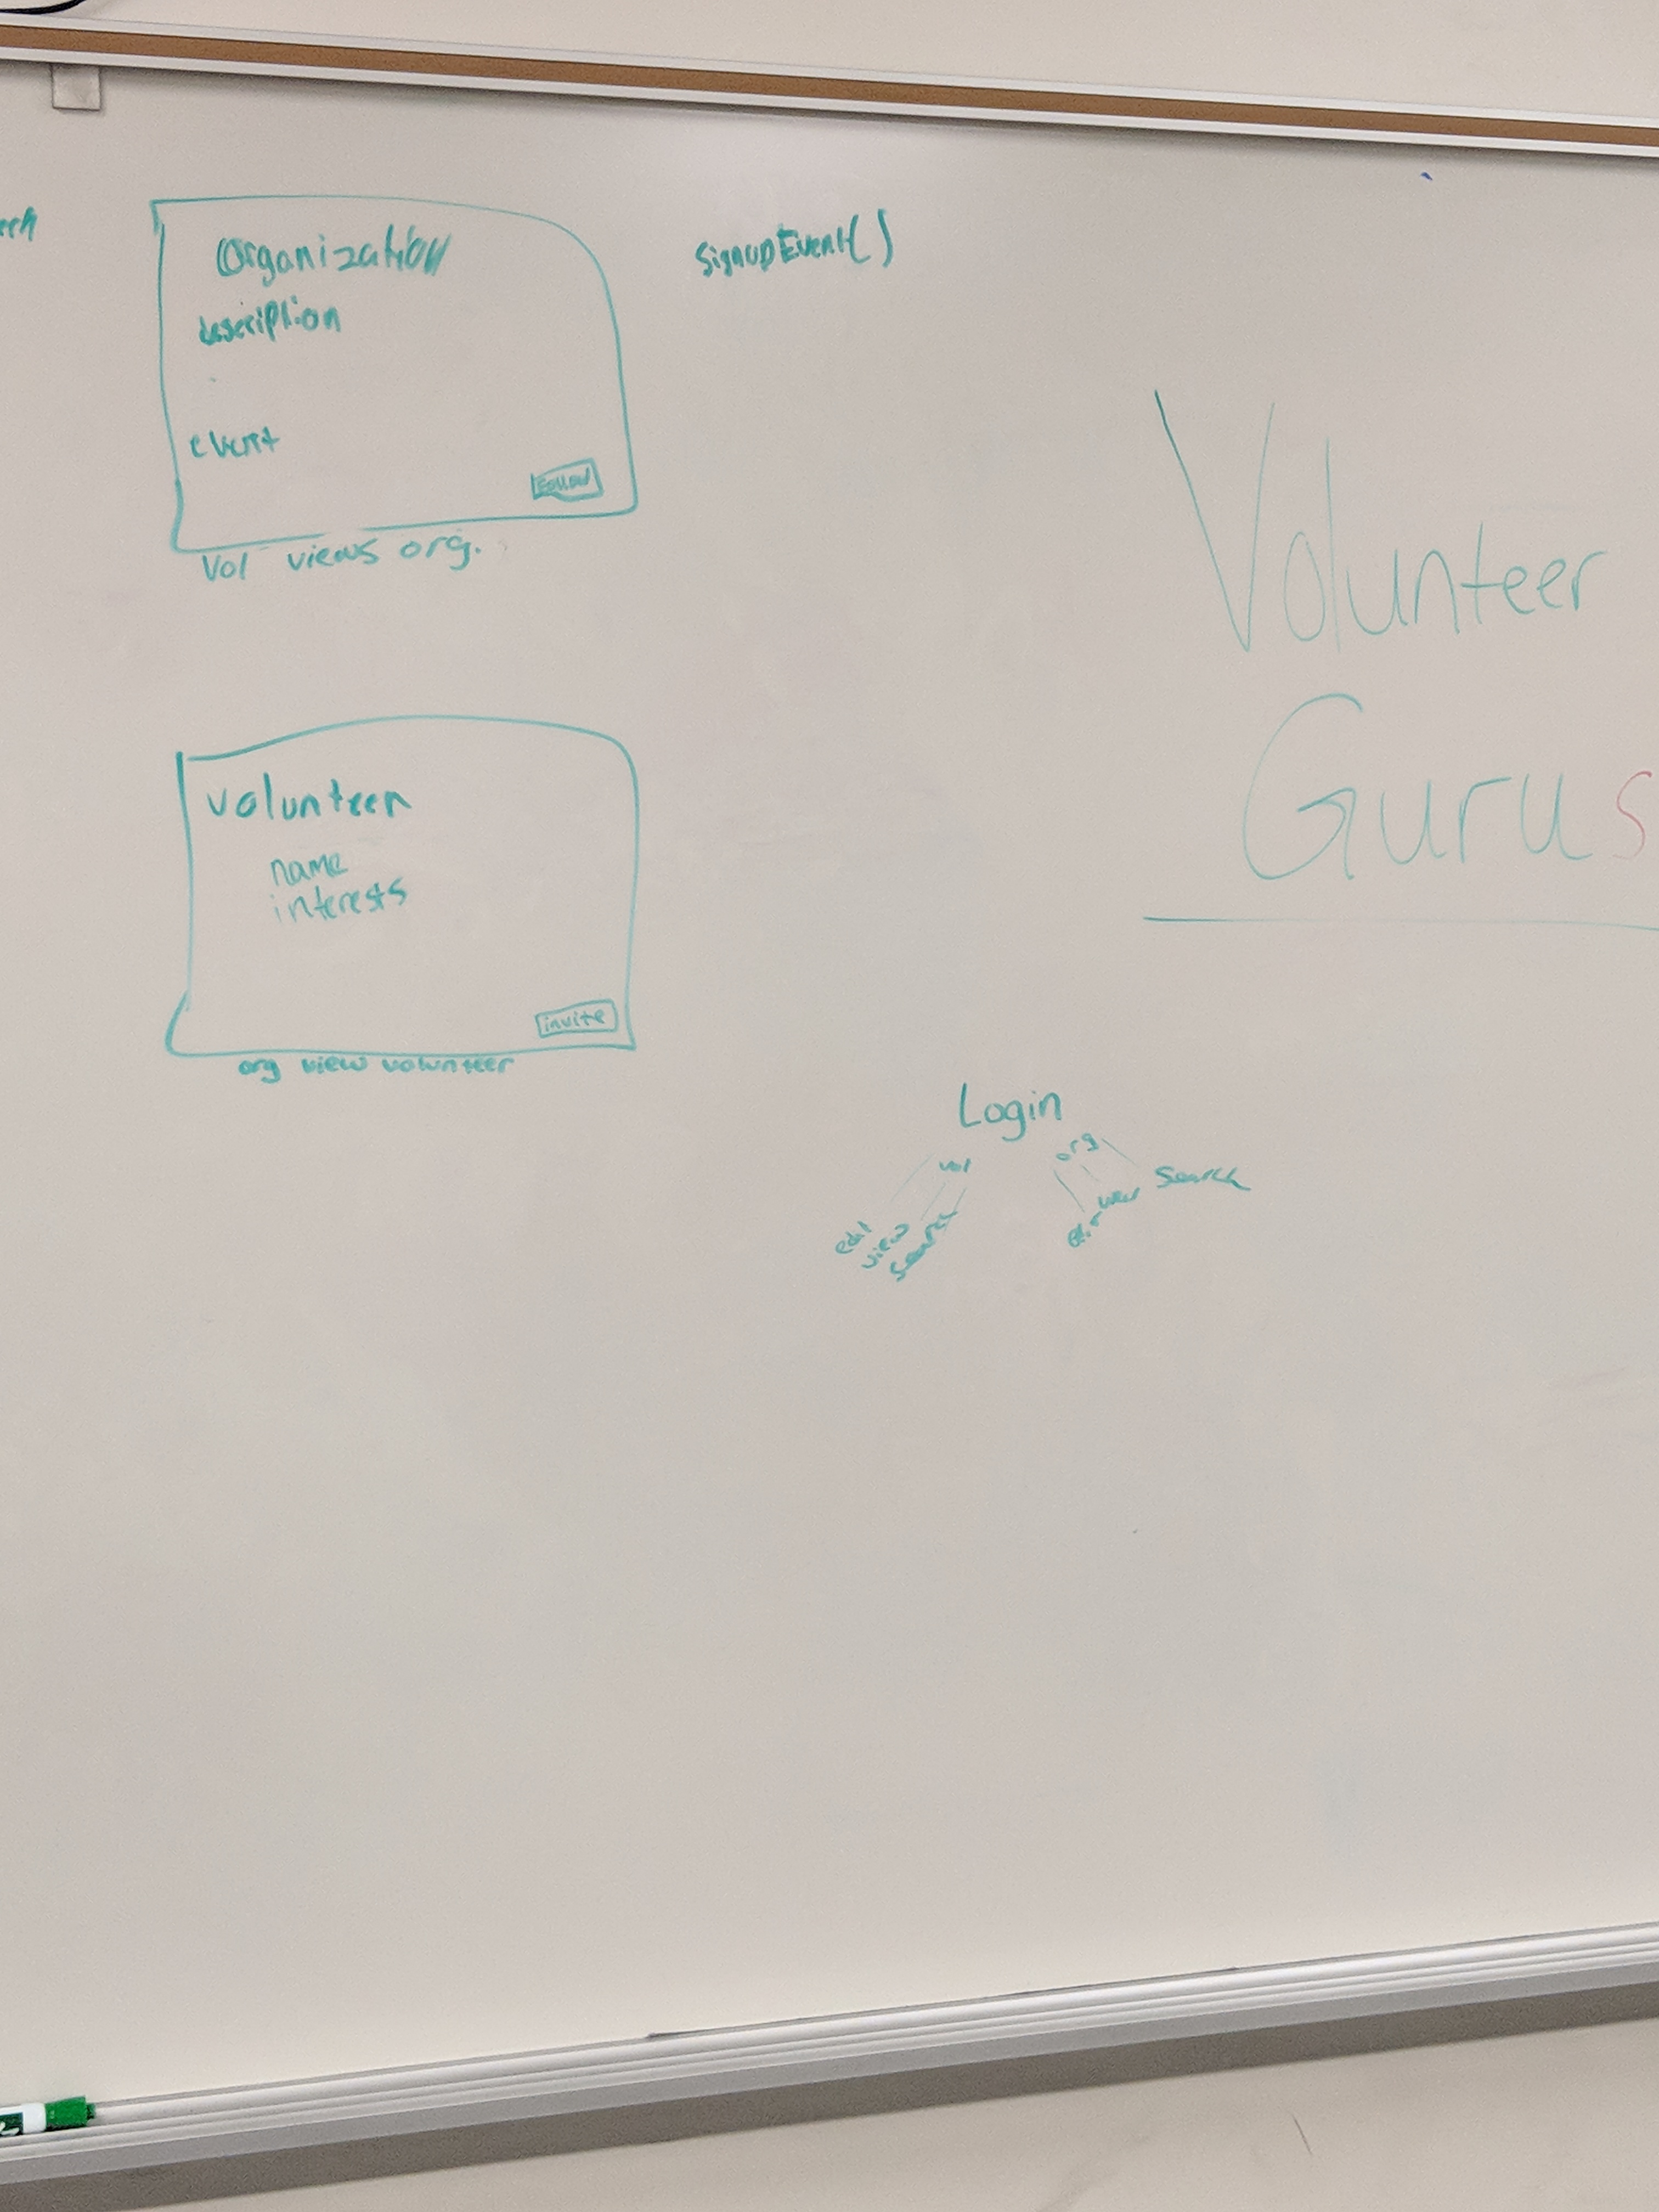 Organization
description
event
Follow
Vol views org.
SignupEvent()
Volunteer
Gurus
volunteer
name
interests
invite
org view volunteer
Login
vol
org
edit
view
Search
edit
view
Search